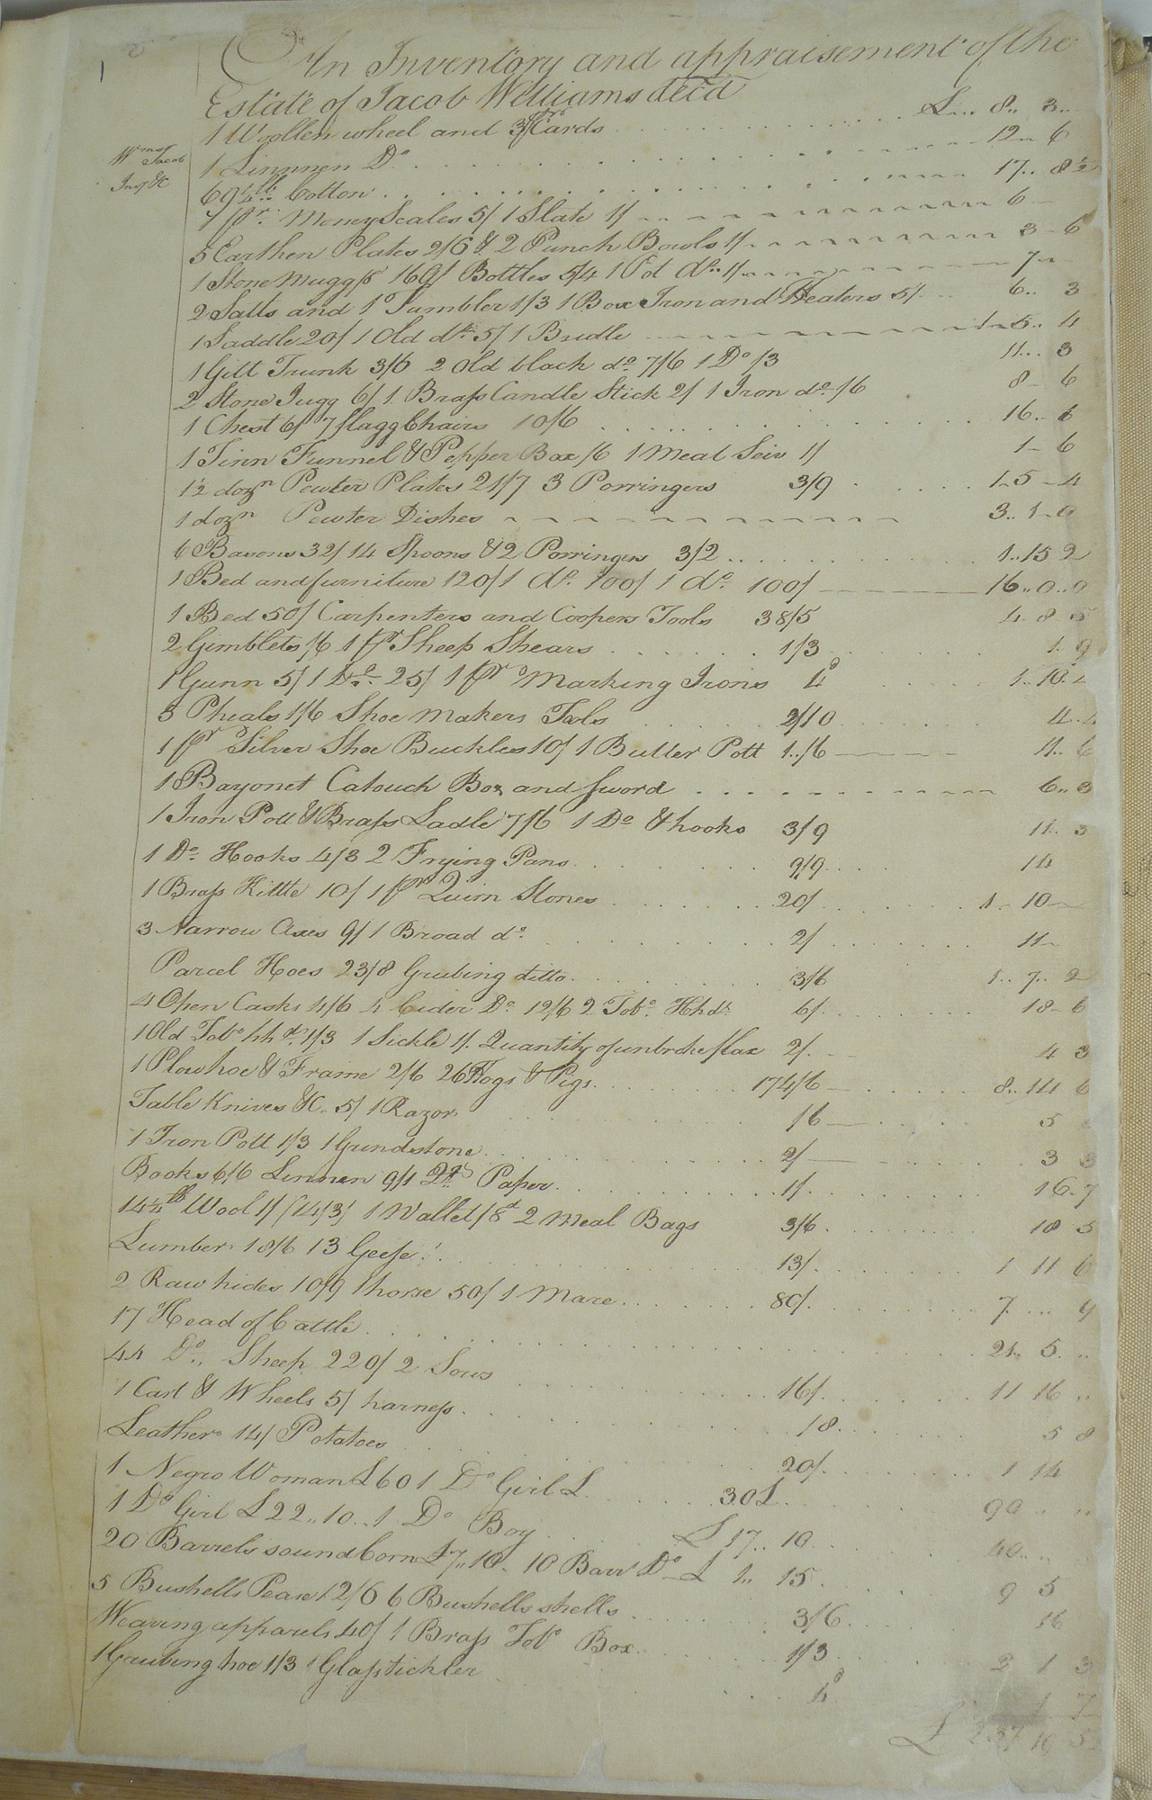 An Inventory and appraisement of the
Estate of Jacob Williams decd
1 Woollen wheel and 3 pr Cards £ .. 8.. 3..
Wms Jacob
Inv &c
1 Linnen Do 12.. 6
69¼ lb Cotton 17.. 8½
1 pr Money Scales 5/ 1 Slate 1/ 6
5 Earthen Plates 2/6 & 2 Punch Bowls 1/ 3 - 6
1 Stone Mugg 1609 Bottles 5/4 1 Pot do 1/ 7
2 Salts and 1 Tumbler 1/3 1 Box Iron and Heaters 5/ 6.. 3
1 Saddle 20/ 1 Old do 5/ 1 Bridle 1.. 5.. 4
1 Gilt Trunk 3/6 2 Old black do 7/6 1 Do /3 11.. 3
2 Stone Jugg 6/ 1 Brass Candle Stick 2/ 1 Iron do /6 8 - 6
1 Chest 6/ 7 flagg Chairs 10/6 16.. 6
1 Tinn Funnel & Pepper Box /6 1 Meal Seiv 1/ 1 - 6
1½ dozn Pewter Plates 21/7 3 Porringers 3/9 1 - 5 - 4
1 dozn Pewter Dishes 3.. 1 - 0
6 Basons 32/ 14 Spoons & 2 Porringers 3/2 1.. 15 2
1 Bed and furniture 120/ 1 do 100/ 1 do 100/ 16.. 0.. 0
1 Bed 50/ Carpenters and Coopers Tools 38/5 4. 8 5
2 Gimblets /6 1 pr Sheep Shears 1/3 1. 9
1 Gunn 5/ 1 Do 25/ 1 pr Marking Irons 4d 1.. 10. 4
3 Pheals 1/6 Shoe Makers Tools 2/10 4.. 4
1 pr Silver Shoe Buckles 10/ 1 Butter Pott 1../6 11.. 6
1 Bayonet Catouch Box and sword 6.. 3
1 Iron Pott & Brass Ladle 7/6 1 Do & hooks 3/9 11.. 3
1 Do Hooks 4/3 2 Frying Pans 9/9 14
1 Brass Kittle 10/ 1 pr Quirn Stones 20/ 1.. 10
3 Narrow Axes 9/ 1 Broad do 2/ 11
Parcel Hoes 23/8 Grubing ditto 3/6 1.. 7.. 2
4 Open Casks 4/6 4 Cider Do 12/6 2 Tobo Hhds 6/ 18 - 6
1 Old Tobo hhd 1/3 1 Sickle 1/ Quantity of unbroke flax 2/ 4 3
1 Plow hoe & Frame 2/6 26 Hogs & Pigs 174/6 8.. 14 6
Table Knives &c 5/ 1 Razor /6 5
1 Iron Pott 1/3 1 Grindstone 2/ 3 3
Books 6/6 Linnen 9/1 Paper 1/ 16.. 7
14¼ lb Wool 1/ (14/3) 1 Wallet /8d 2 Meal Bags 3/6 18 5
Lumber 18/6 13 Geese 13/ 1 11 6
2 Raw hides 10/9 1 horse 50/ 1 Mare 80/ 7 ... 9
17 Head of Cattle 21.. 5 ..
44 Do Sheep 220/ 2 Sows 16/ 11 16 ..
1 Cart & Wheels 5/ harness /8 5 8
Leather 14/ Potatoes 20/ 1 14
1 Negro Woman £60 1 Do Girl £ 30£ 90
1 Do Girl £22.. 10.. 1 Do Boy £ 17.. 10 40..
20 Barrels sound Corn £7.. 10. 10 Barr Do £ 1.. 15 9 5
5 Bushells Pease 12/6 6 Bushells shells 3/6 16
Wearing apparels 40/ 1 Brass Tobo Box 1/3 2 1 3
1 Grubing hoe 1/3 1 Glass tickler 4d 1 7
£ 237 10 5